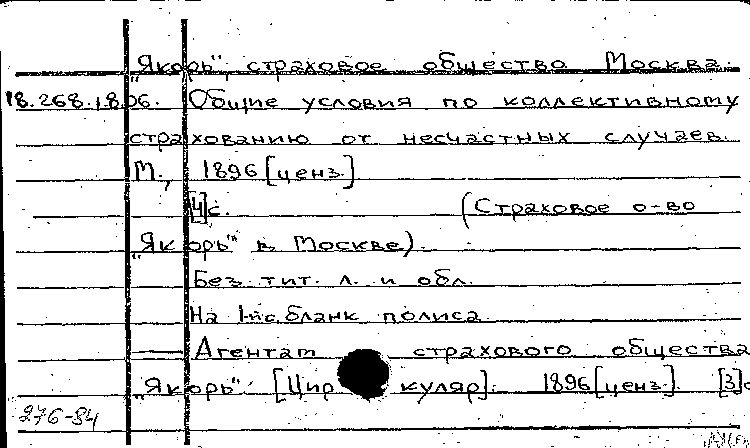 "Якорь", страховое общество Москва.
18.268.1.806. Общие условия по коллективному
страхованию от несчастных случаев.
М., 1896 [ценз.]
[4]с. (Страховое о-во
"Якорь" в Москве).
Без тит. л. и обл.
На 1-й с. бланк полиса
— Агентам страхового общества
"Якорь". [Циркуляр]. 1896 [ценз.]. [3]с
276-84